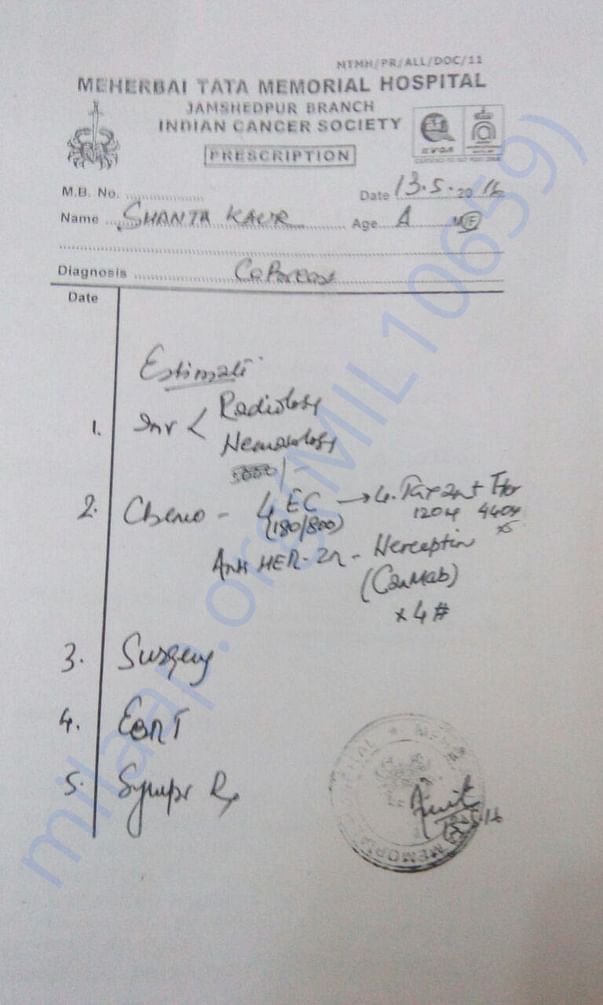 MTMH/PR/ALL/DOC/11
MEHERBAI TATA MEMORIAL HOSPITAL
JAMSHEDPUR BRANCH
INDIAN CANCER SOCIETY
PRESCRIPTION
M.B. No. Date 13.5.2016
Name SHANTA KAUR Age A M/F
Diagnosis Ca Breast
Date
Estimate
1. Inv < Radiology
Hematology
5000/-
2. Chemo - 4 EC → 4.
(180/800) 120 440
Anti HER-2n - Herceptin
(CanMab)
x 4 #
3. Surgery
4. EBRT
5. Sympt Rx
MEMORIAL
milaap.org(MIL10659)